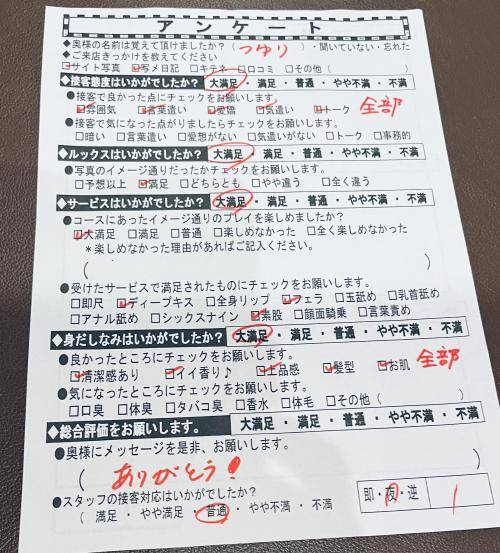 アンケート
◆奥様の名前は覚えて頂けましたか？（つゆり）・聞いていない・忘れた
◆ご来店きっかけを教えてください
☑サイト写真 ☑写メ日記 □キテネ □口コミ □その他（
◆接客態度はいかがでしたか？ 大満足 ・ 満足 ・ 普通 ・ やや不満 ・ 不満
●接客で良かった点にチェックをお願いします。
☑雰囲気 ☑言葉遣い ☑愛嬌 ☑気遣い ☑トーク 全部
●接客で気になった点がりましたらチェックをお願いします。
□暗い □言葉遣い □愛想がない □気遣いがない □トーク □事務的
◆ルックスはいかがでしたか？ 大満足 ・ 満足 ・ 普通 ・ やや不満 ・ 不満
●写真のイメージ通りだったかチェックをお願いします。
□予想以上 ☑満足 □どちらとも □やや違う □全く違う
◆サービスはいかがでしたか？ 大満足 ・ 満足 ・ 普通 ・ やや不満 ・ 不満
●コースにあったイメージ通りのプレイを楽しめましたか？
☑大満足 □満足 □普通 □楽しめなかった □全く楽しめなかった
＊楽しめなかった理由があればご記入ください。
（ ）
●受けたサービスで満足されたものにチェックをお願いします。
□即尺 ☑ディープキス □全身リップ ☑フェラ □玉舐め □乳首舐め
□アナル舐め □シックスナイン ☑素股 □顔面騎乗 □言葉責め
◆身だしなみはいかがでしたか？ 大満足 ・ 満足 ・ 普通 ・ やや不満 ・ 不満
●良かったところにチェックをお願いします。
☑清潔感あり ☑イイ香り♪ ☑上品感 ☑髪型 ☑お肌 全部
●気になったところにチェックをお願いします。
□口臭 □体臭 □タバコ臭 □香水 □体毛 □その他（ ）
◆総合評価をお願いします。 大満足 ・ 満足 ・ 普通 ・ やや不満 ・ 不満
●奥様にメッセージを是非、お願いします。
（ありがとう！ ）
●スタッフの接客対応はいかがでしたか？
（ 満足 ・ やや満足 ・ 普通 ・ やや不満 ・ 不満
即・夜・逆 1